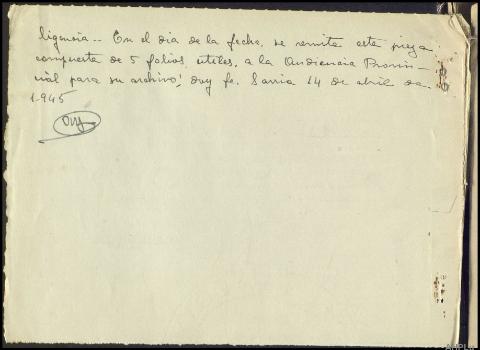 ligencia.- En el dia de la fecha, se remite esta pieza
compuesta de 5 folios utiles, a la Audiencia Provin
cial para su archivo, doy fe. Sarria 14 de abril de
1.945